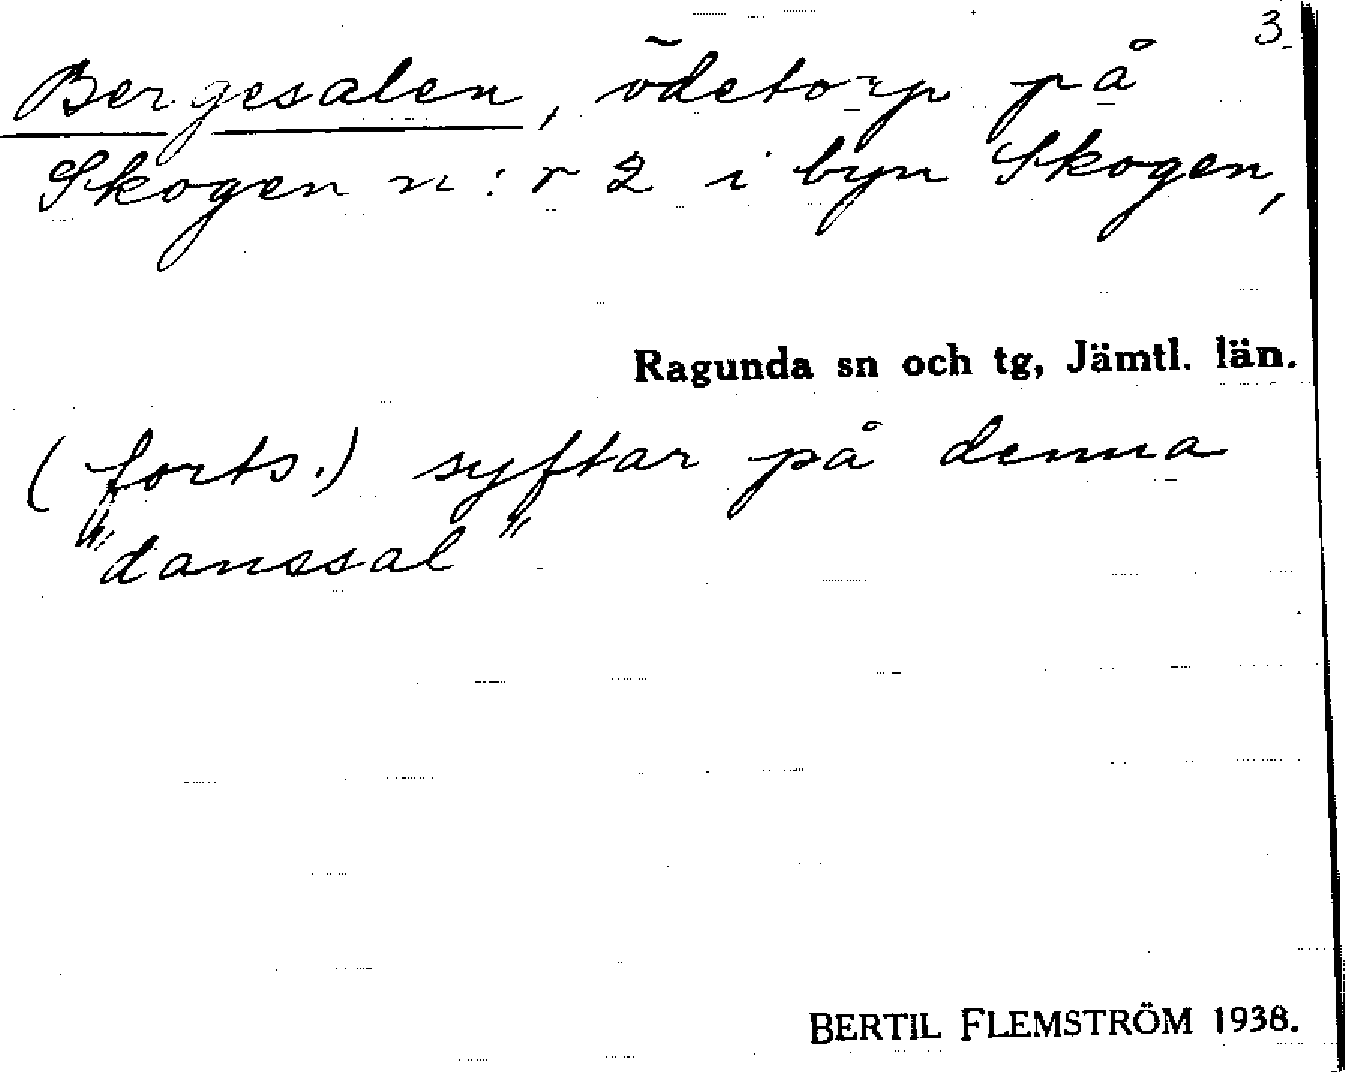 3.
Bergesalen, ödetorp på
Skogen n:r 2 i byn Skogen,
Ragunda sn och tg, Jämtl. län.
(forts.) syftar på denna
"danssal"
BERTIL FLEMSTRÖM 1938.